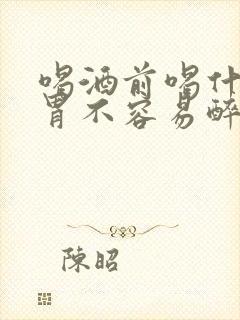 喝酒前喝什
胃不容易醉
陳昭